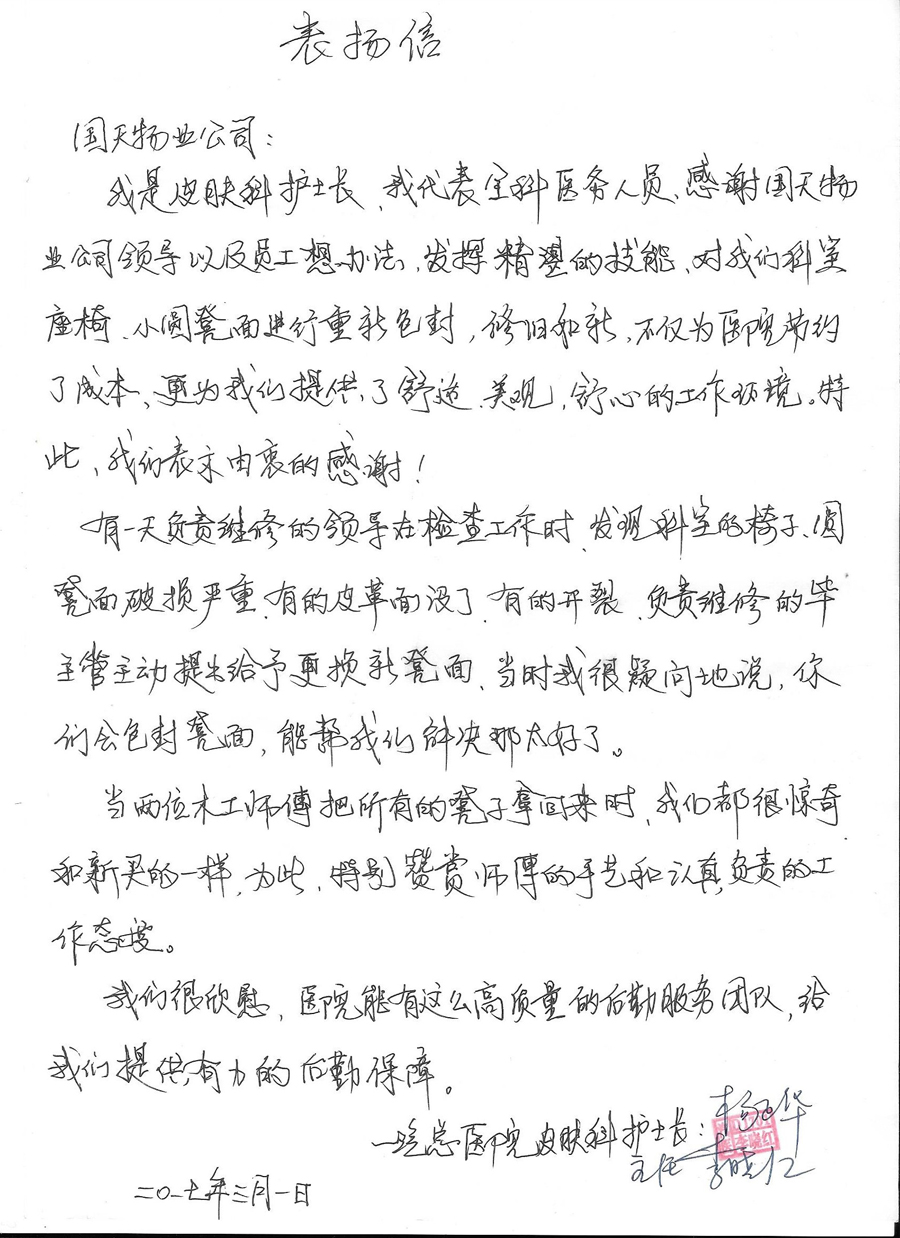 表扬信
国天物业公司：
我是皮肤科护士长，我代表全科医务人员、感谢国天物
业公司领导以及员工想办法，发挥精湛的技能、对我们科室
座椅、小圆凳面进行重新包封，修旧如新，不仅为医院节约
了成本、更为我们提供了舒适、美观，舒心的工作环境。特
此、我们表示由衷的感谢！
有一天负责维修的领导在检查工作时，发现科室的椅子、圆
凳面破损严重，有的皮革面没了，有的开裂，负责维修的毕
主管主动提出给予更换新凳面、当时我很疑问地说，你
们会包封凳面，能帮我们解决那太好了。
当两位木工师傅把所有的凳子拿回来时，我们都很惊奇
和新买的一样，为此，特别赞赏师傅的手艺和认真负责的工
作态度。
我们很欣慰，医院能有这么高质量的后勤服务团队，给
我们提供有力的后勤保障。
一汽总医院皮肤科护士长：
主任
二〇一七年三月一日